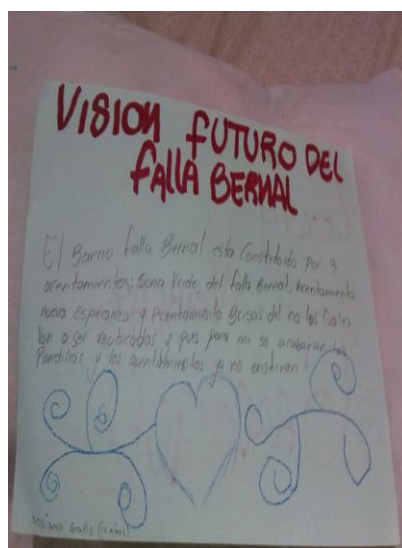 VISION FUTURO DEL
FALLA BERNAL
El Barrio falla Bernal esta Constituido Por 3
acentamientos; Zona Verde del falla Bernal, Acentamiento
nueva Esperanza y Acentamiento Brisas del rio los Cuales
Van a ser reubicados y pues para mi se acabaran las
Pandillas y los acentamientos ya no existiran